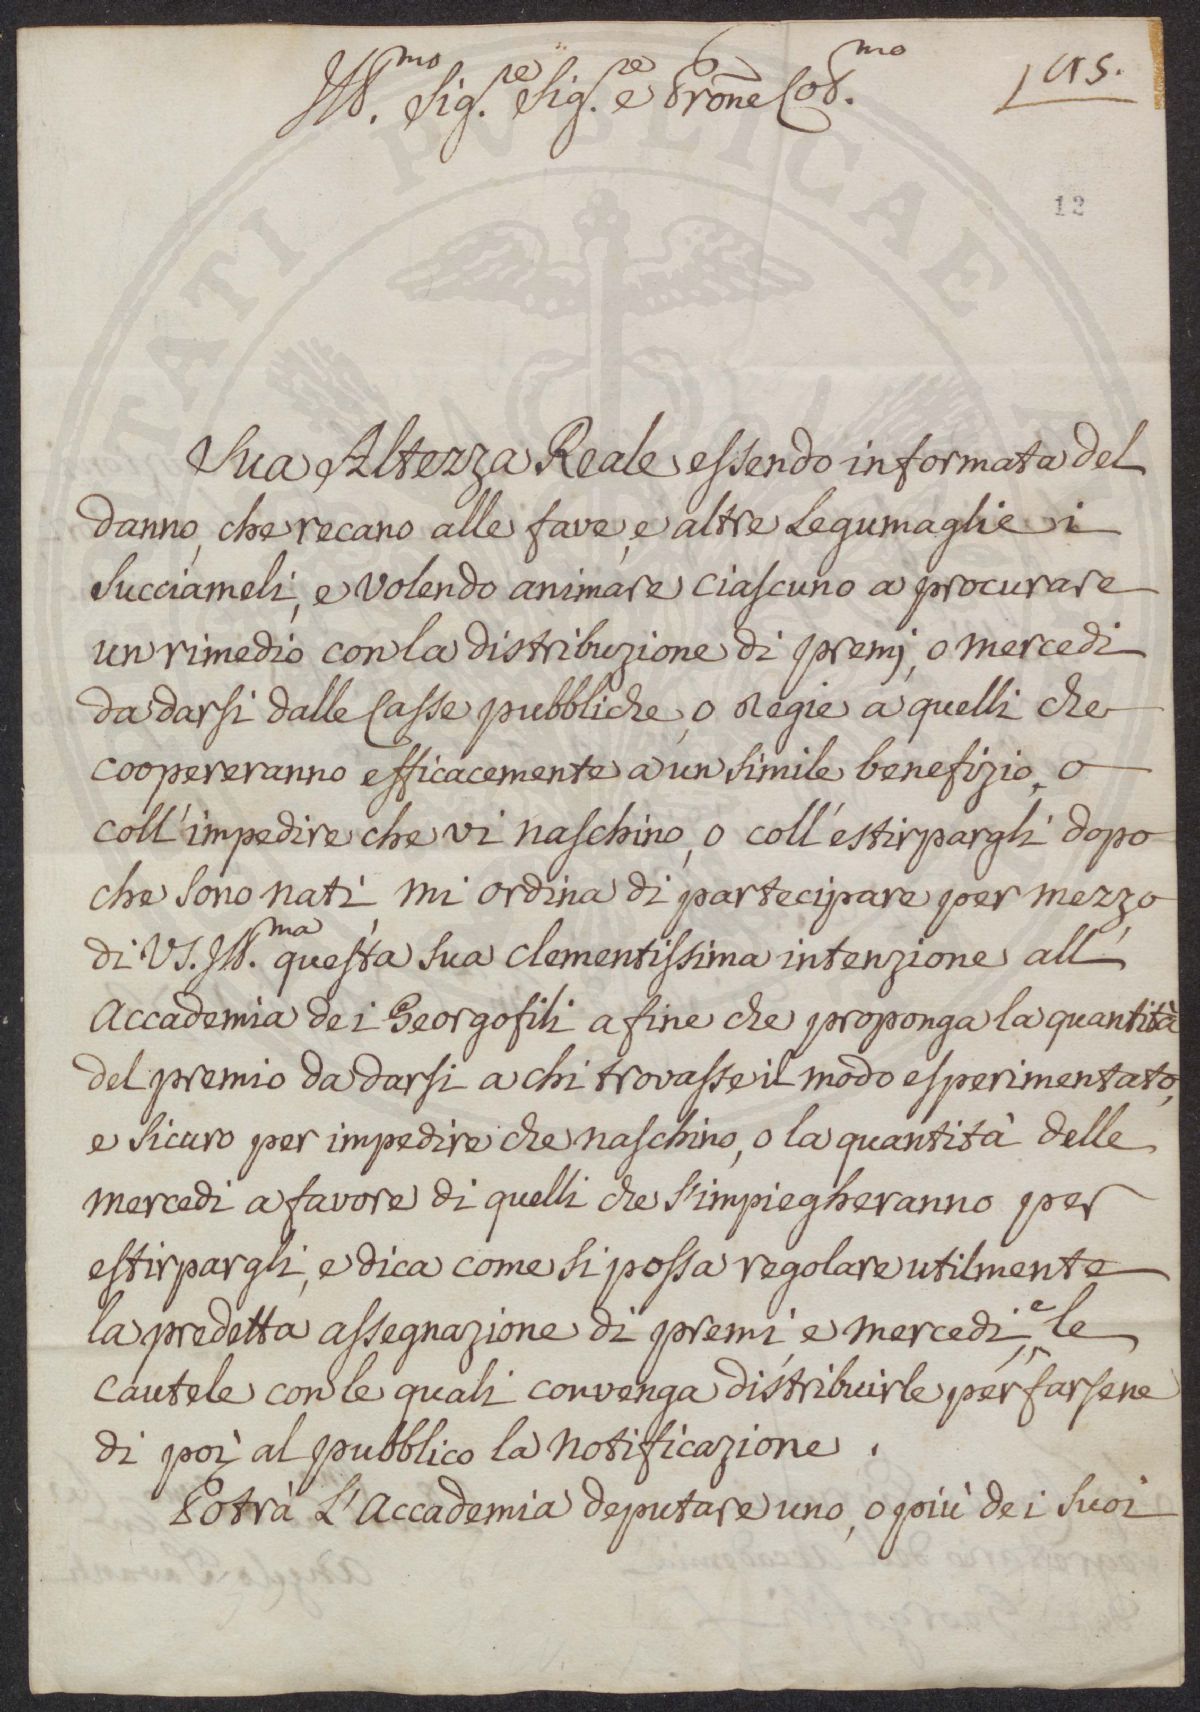 Ill.mo Sig.re Sig.re e Prone Col.mo
115.
12
Sua Altezza Reale essendo informata del
danno, che recano alle fave, e altre Legumaglie i
Succiameli, e Volendo animare Ciascuno a procurare
un rimedio con la distribuzione di premj, o mercedi
da darsi dalle Casse pubbliche, o Regie a quelli che
coopereranno efficacemente a un simile benefizio, o
coll'impedire che vi naschino, o coll'estirpargli dopo
che sono nati, mi ordina di partecipare per mezzo
di VS. Ill.ma questa sua clementissima intenzione all'
Accademia dei Georgofili a fine che proponga la quantità
del premio da darsi a chi trovasse il modo esperimentato,
e sicuro per impedire che naschino, o la quantità delle
mercedi a favore di quelli che s'impiegheranno per
estirpargli, e dica come si possa regolare utilmente
la predetta assegnazione di premi, e mercedi, e le
cautele con le quali convenga distribuirle per farsene
di poi al pubblico la notificazione.
Potrà L'Accademia deputare uno, o più dei Suoi